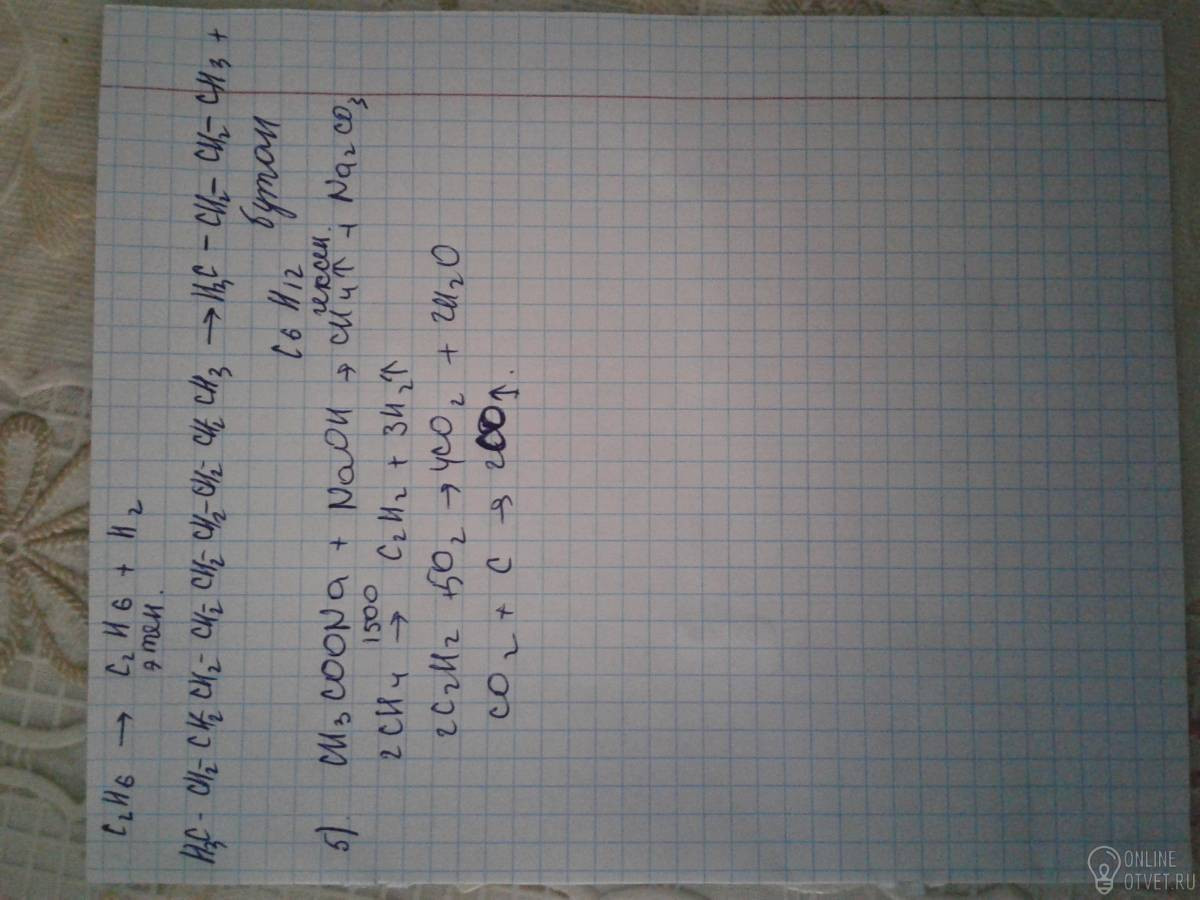 C₂H₆ → C₂H₆ + H₂
этен.
H₃C - CH₂ - CH₂ CH₂ - CH₂ - CH₂ - CH₂ - CH₂ - CH₂ CH₃ → H₃C - CH₂ - CH₂ - CH₃ +
C₆ H₁₂ бутан
гексен.
5). CH₃COONa + NaOH → CH₄↑ + Na₂CO₃
2CH₄ 1500 → C₂H₂ + 3H₂↑
2C₂H₂ + 5O₂ → 4CO₂ + 2H₂O
CO₂ + C → 2CO↑.
ONLINE
OTVET.RU